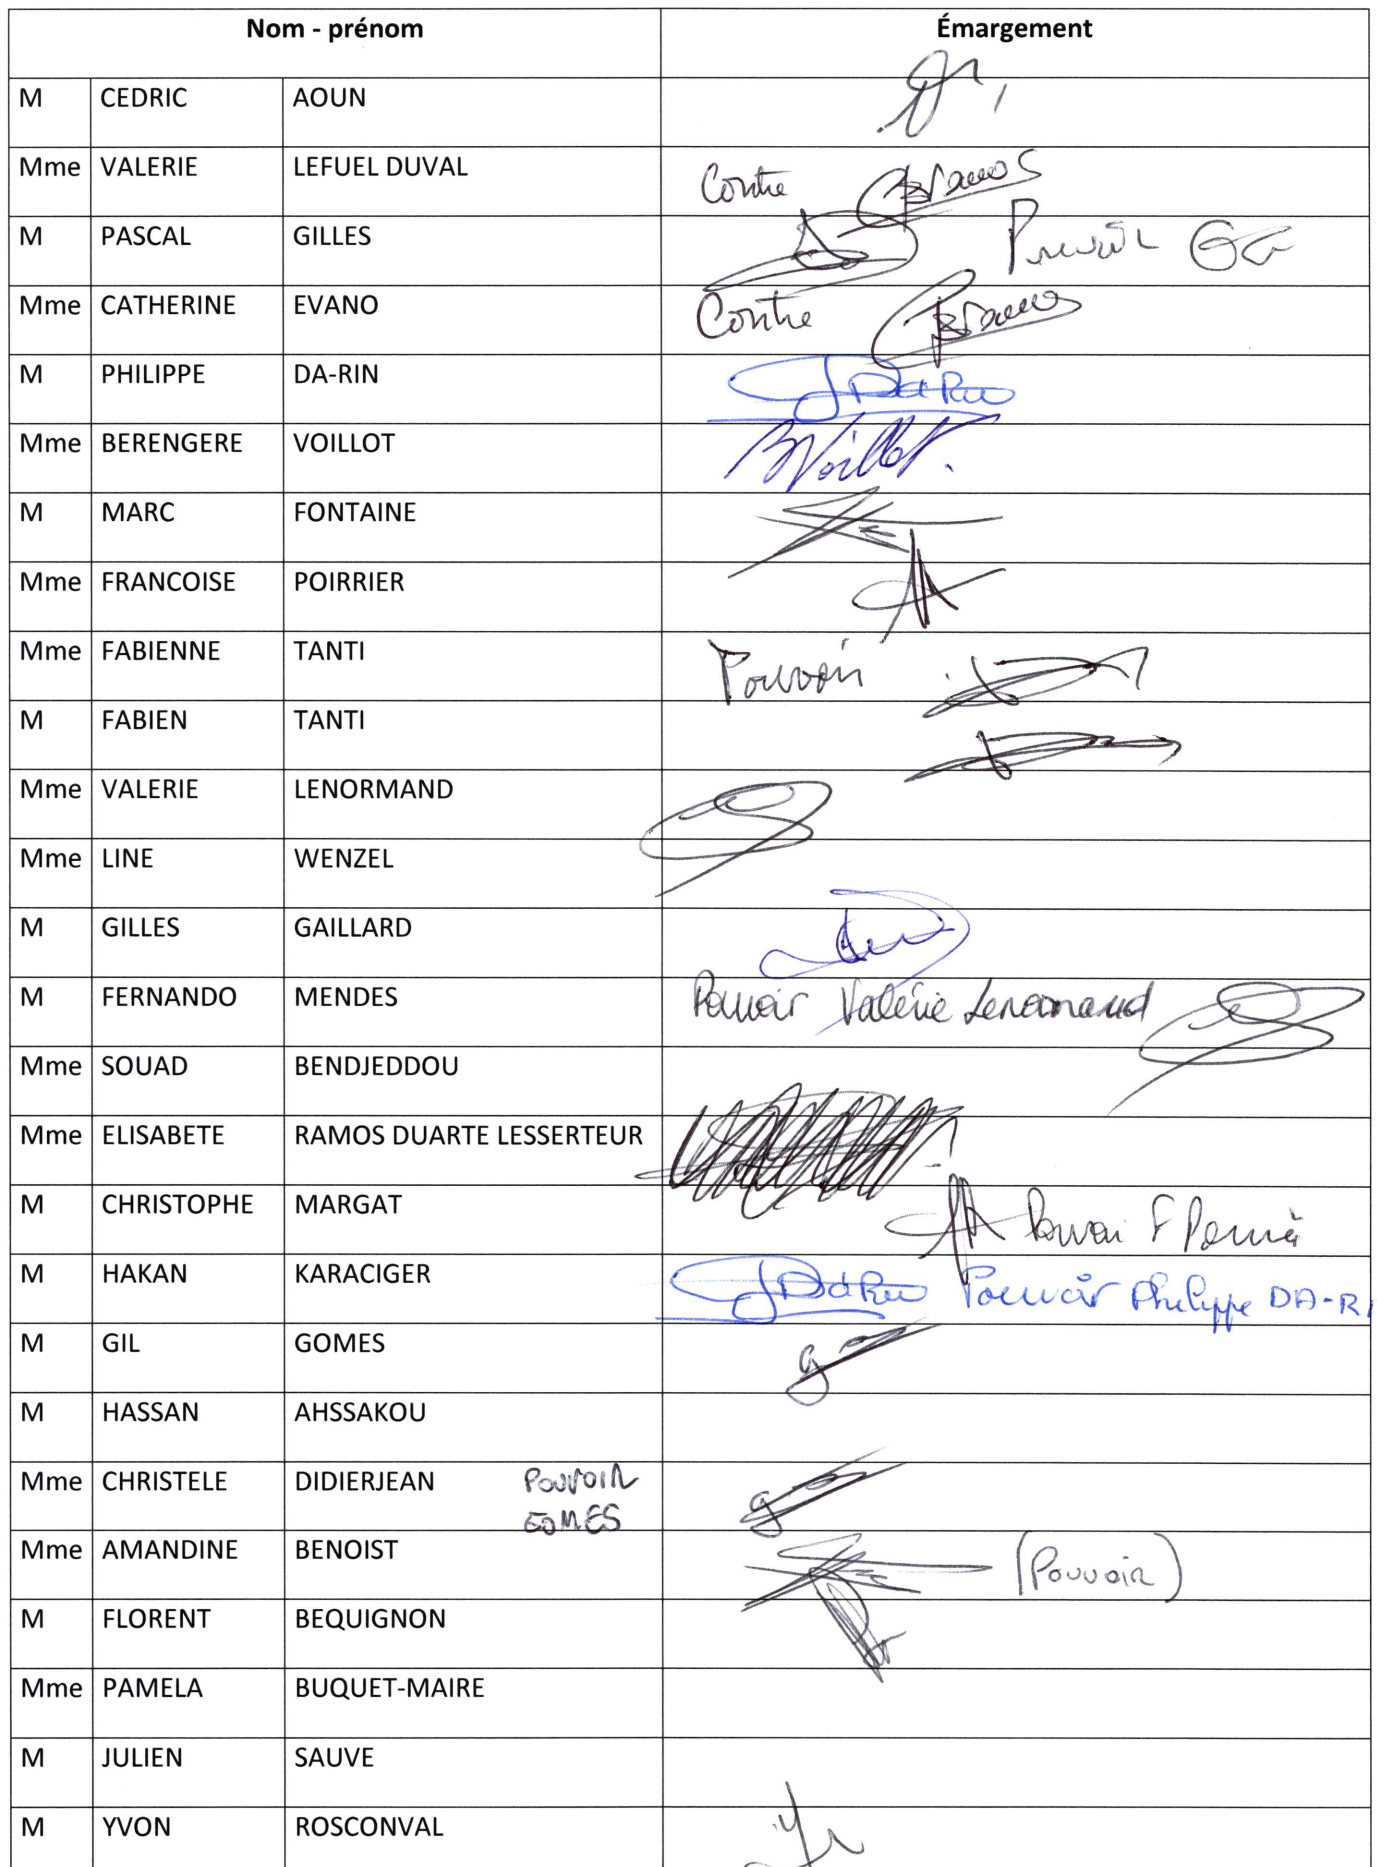 Nom - prénom Émargement
M CEDRIC AOUN
Mme VALERIE LEFUEL DUVAL Contre
M PASCAL GILLES Pouvoir GG
Mme CATHERINE EVANO Contre
M PHILIPPE DA-RIN
Mme BERENGERE VOILLOT BVoillot.
M MARC FONTAINE
Mme FRANCOISE POIRRIER
Mme FABIENNE TANTI Pouvoir
M FABIEN TANTI
Mme VALERIE LENORMAND
Mme LINE WENZEL
M GILLES GAILLARD
M FERNANDO MENDES Pouvoir Valérie Lenormand
Mme SOUAD BENDJEDDOU
Mme ELISABETE RAMOS DUARTE LESSERTEUR
M CHRISTOPHE MARGAT F
M HAKAN KARACIGER Pouvoir Philippe DA-RI
M GIL GOMES
M HASSAN AHSSAKOU
Mme CHRISTELE DIDIERJEAN POUVOIR
GOMES
Mme AMANDINE BENOIST (Pouvoir)
M FLORENT BEQUIGNON
Mme PAMELA BUQUET-MAIRE
M JULIEN SAUVE
M YVON ROSCONVAL